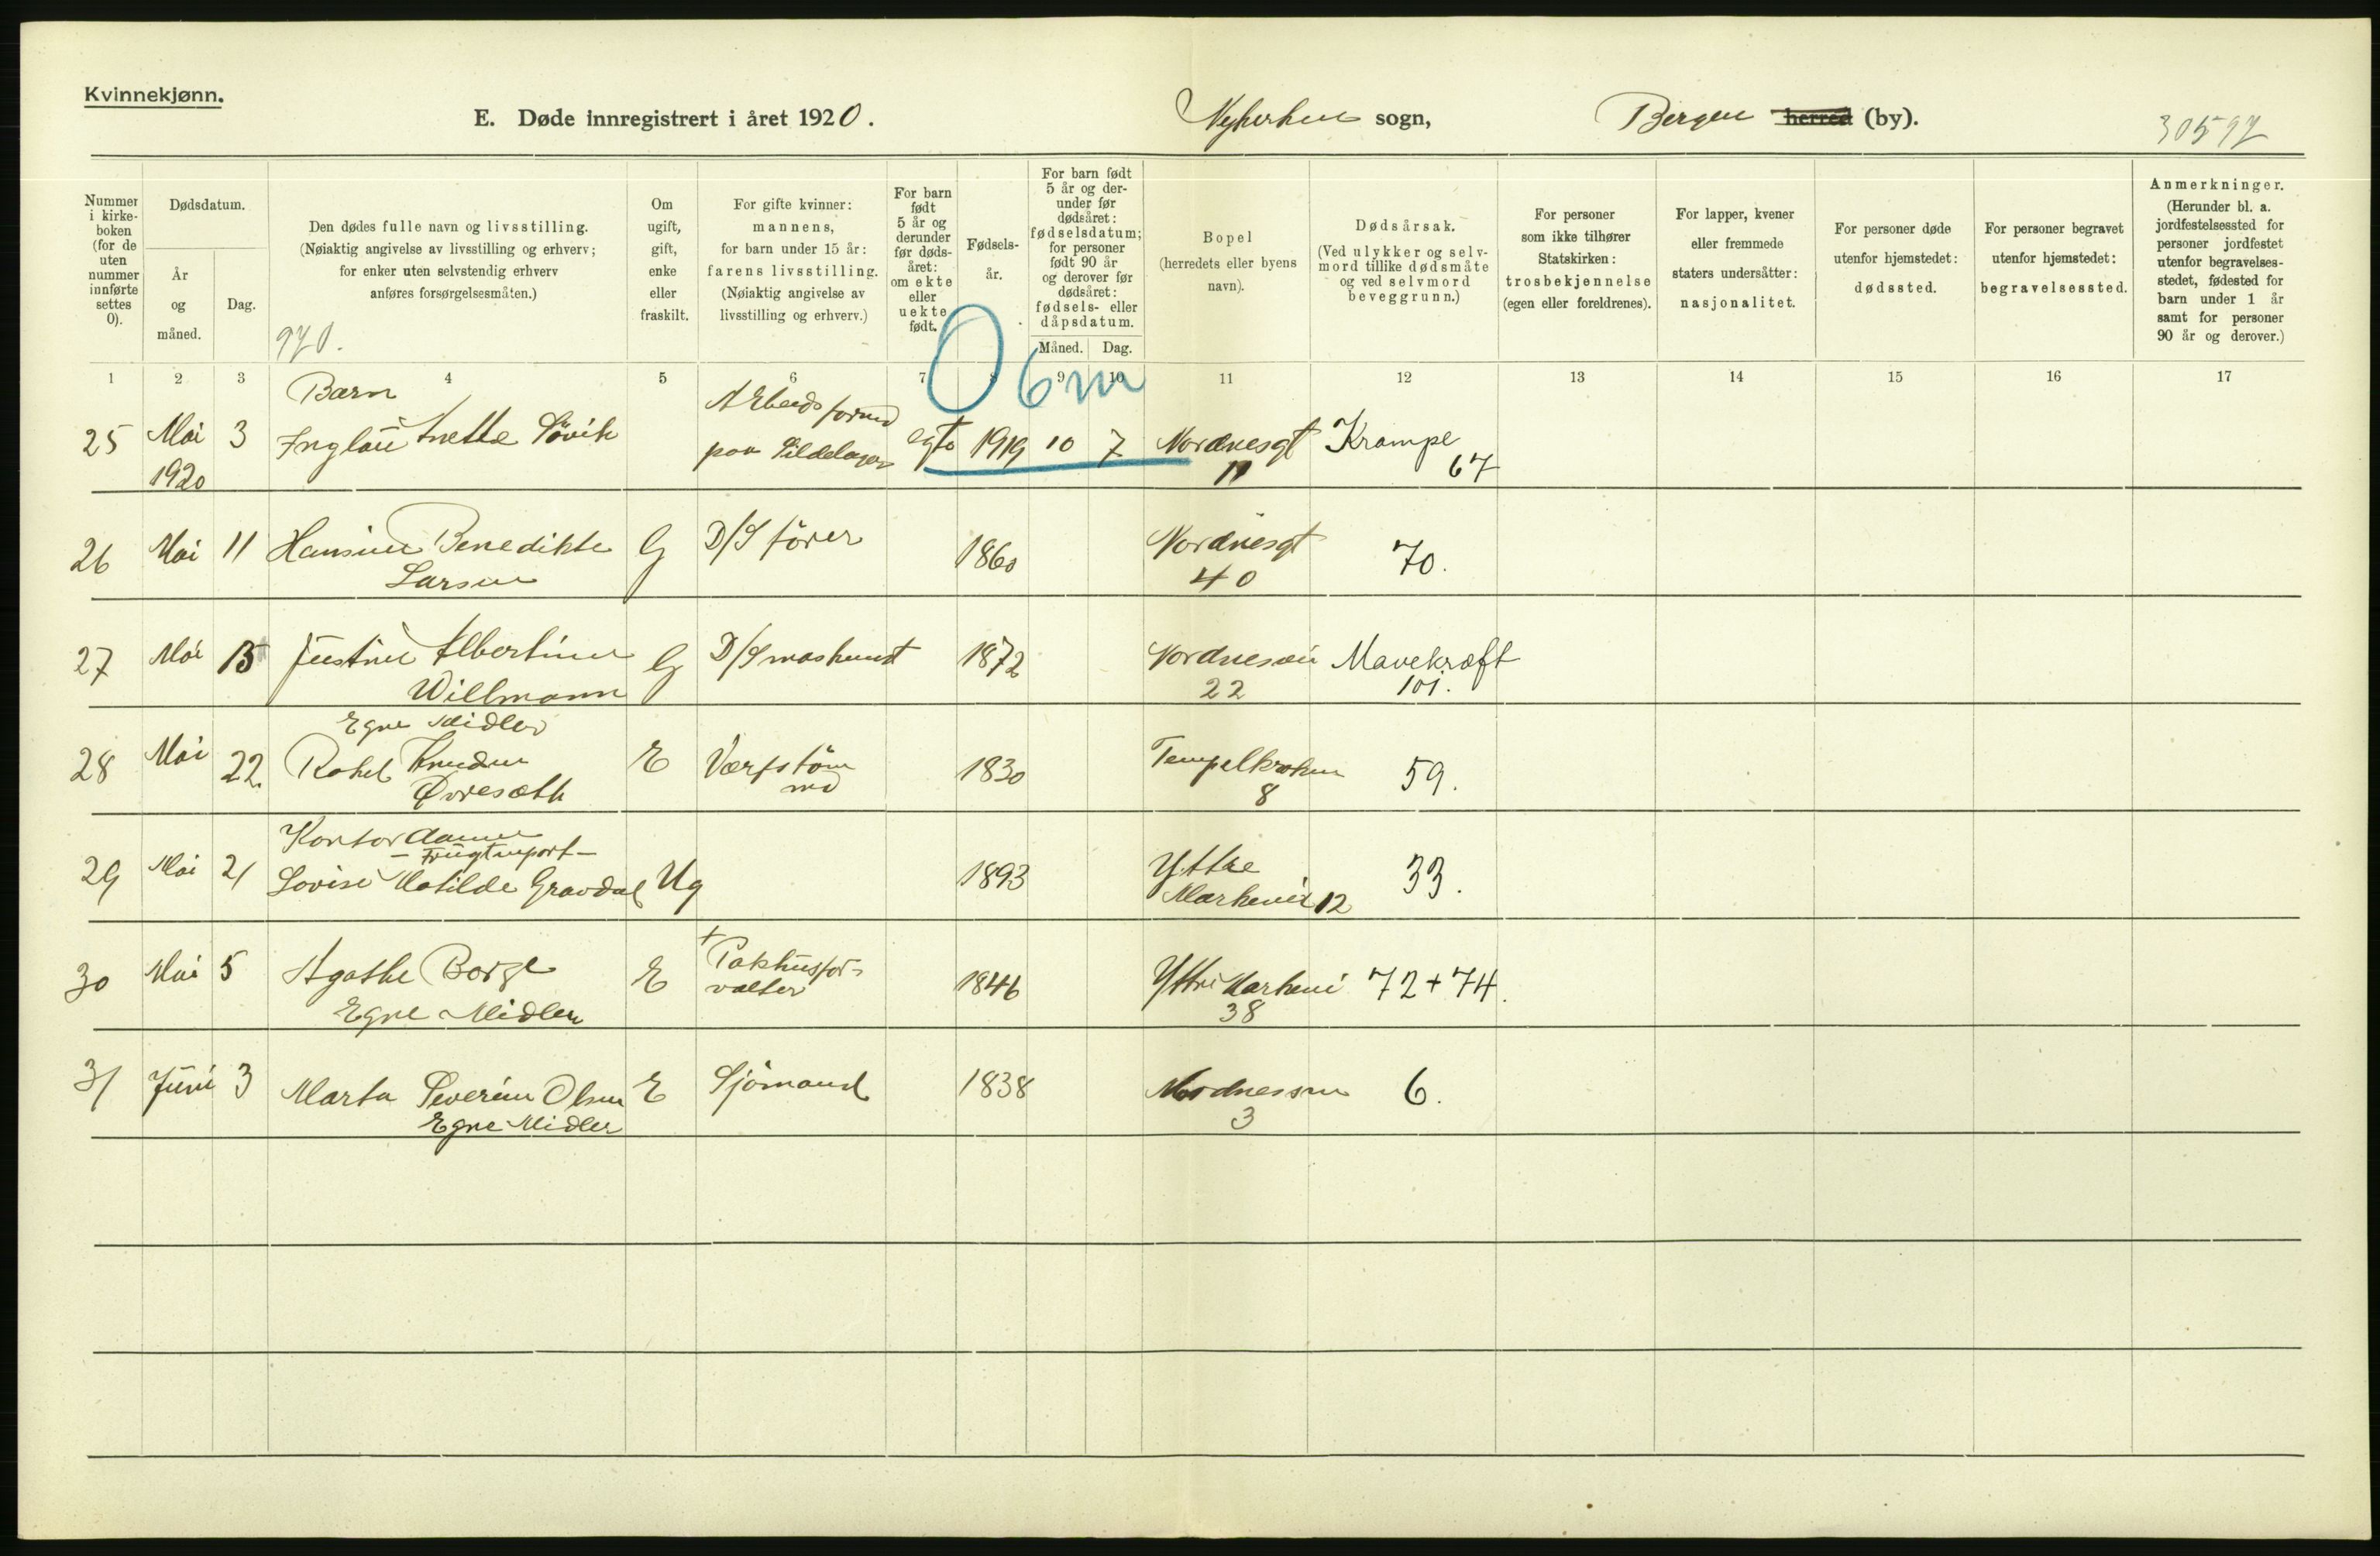 Kvinnekjønn.
E. Døde innregistrert i året 1920. Nykirken sogn, Bergen herred (by). 30597
Nummer i kirkeboken (for de uten nummer innførte settes 0).
Dødsdatum.
År og måned.
Dag.
Den dødes fulle navn og livsstilling.
(Nøiaktig angivelse av livsstilling og erhverv; for enker uten selvstendig erhverv anføres forsørgelsesmåten.)
970.
Om ugift, gift, enke eller fraskilt.
For gifte kvinner: mannens, for barn under 15 år: farens livsstilling. (Nøiaktig angivelse av livsstilling og erhverv.)
For barn født 5 år og derunder før dødsåret: om ekte eller uekte født.
Fødselsår.
For barn født 5 år og derunder før dødsåret: fødselsdatum; for personer født 90 år og derover før dødsåret: fødsels- eller dåpsdatum.
Måned. Dag.
Bopel (herredets eller byens navn).
Dødsårsak. (Ved ulykker og selvmord tillike dødsmåte og ved selvmord beveggrunn.)
For personer som ikke tilhører Statskirken: trosbekjennelse (egen eller foreldrenes).
For lapper, kvener eller fremmede staters undersåtter: nasjonalitet.
For personer døde utenfor hjemstedet: dødssted.
For personer begravet utenfor hjemstedet: begravelsessted.
Anmerkninger. (Herunder bl. a. jordfestelsessted for personer jordfestet utenfor begravelsesstedet, fødested for barn under 1 år samt for personer 90 år og derover.)
1 2 3 4 5 6 7 8 9 10 11 12 13 14 15 16 17
0 6 m
Barn
25 Mai 3 Anette Søvik Arbeidsformd egte 1919 10 7 Nordnesgt Krampe
1920 paa Sildelager 11 67
26 Mai 11 Hansine Benedikte G D/S fører 1860 Nordnesgt 70.
Larsen 40
27 Mai 15 Justine Albertine G D/S maskinist 1872 Nordnesvei Mavekræft
Willmann 22 101.
Egne Midler
28 Mai 22. Rakel Knudsen E 1830 8 59.
Øvresæth
Kontordame
— Frugtimport —
29 Mai 21 Lovise Matilde Gravdal Ug 1893 Ytre Markevei 12 33.
30 Mai 5 Agathe Borge E + Pakhusforvalter 1846 Ytre Markevei 72 + 74.
Egne Midler 38
31 Juni 3 Marta Severine Olsen E Sjømand 1838 6.
Egne Midler 3